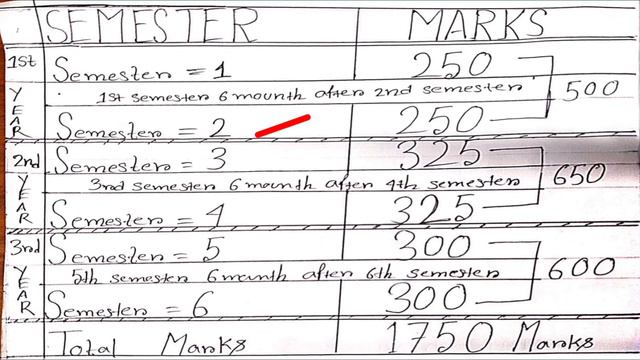 SEMESTER MARKS
1st Semester = 1 250
1st semester 6 mounth after 2nd semester 500
YEAR Semester = 2 250
2nd Semester = 3 325
3rd semester 6 mounth after 4th semester 650
YEAR Semester = 4 325
3rd Semester = 5 300
5th semester 6 mounth after 6th semester 600
YEAR Semester = 6 300
Total Marks 1750 Marks